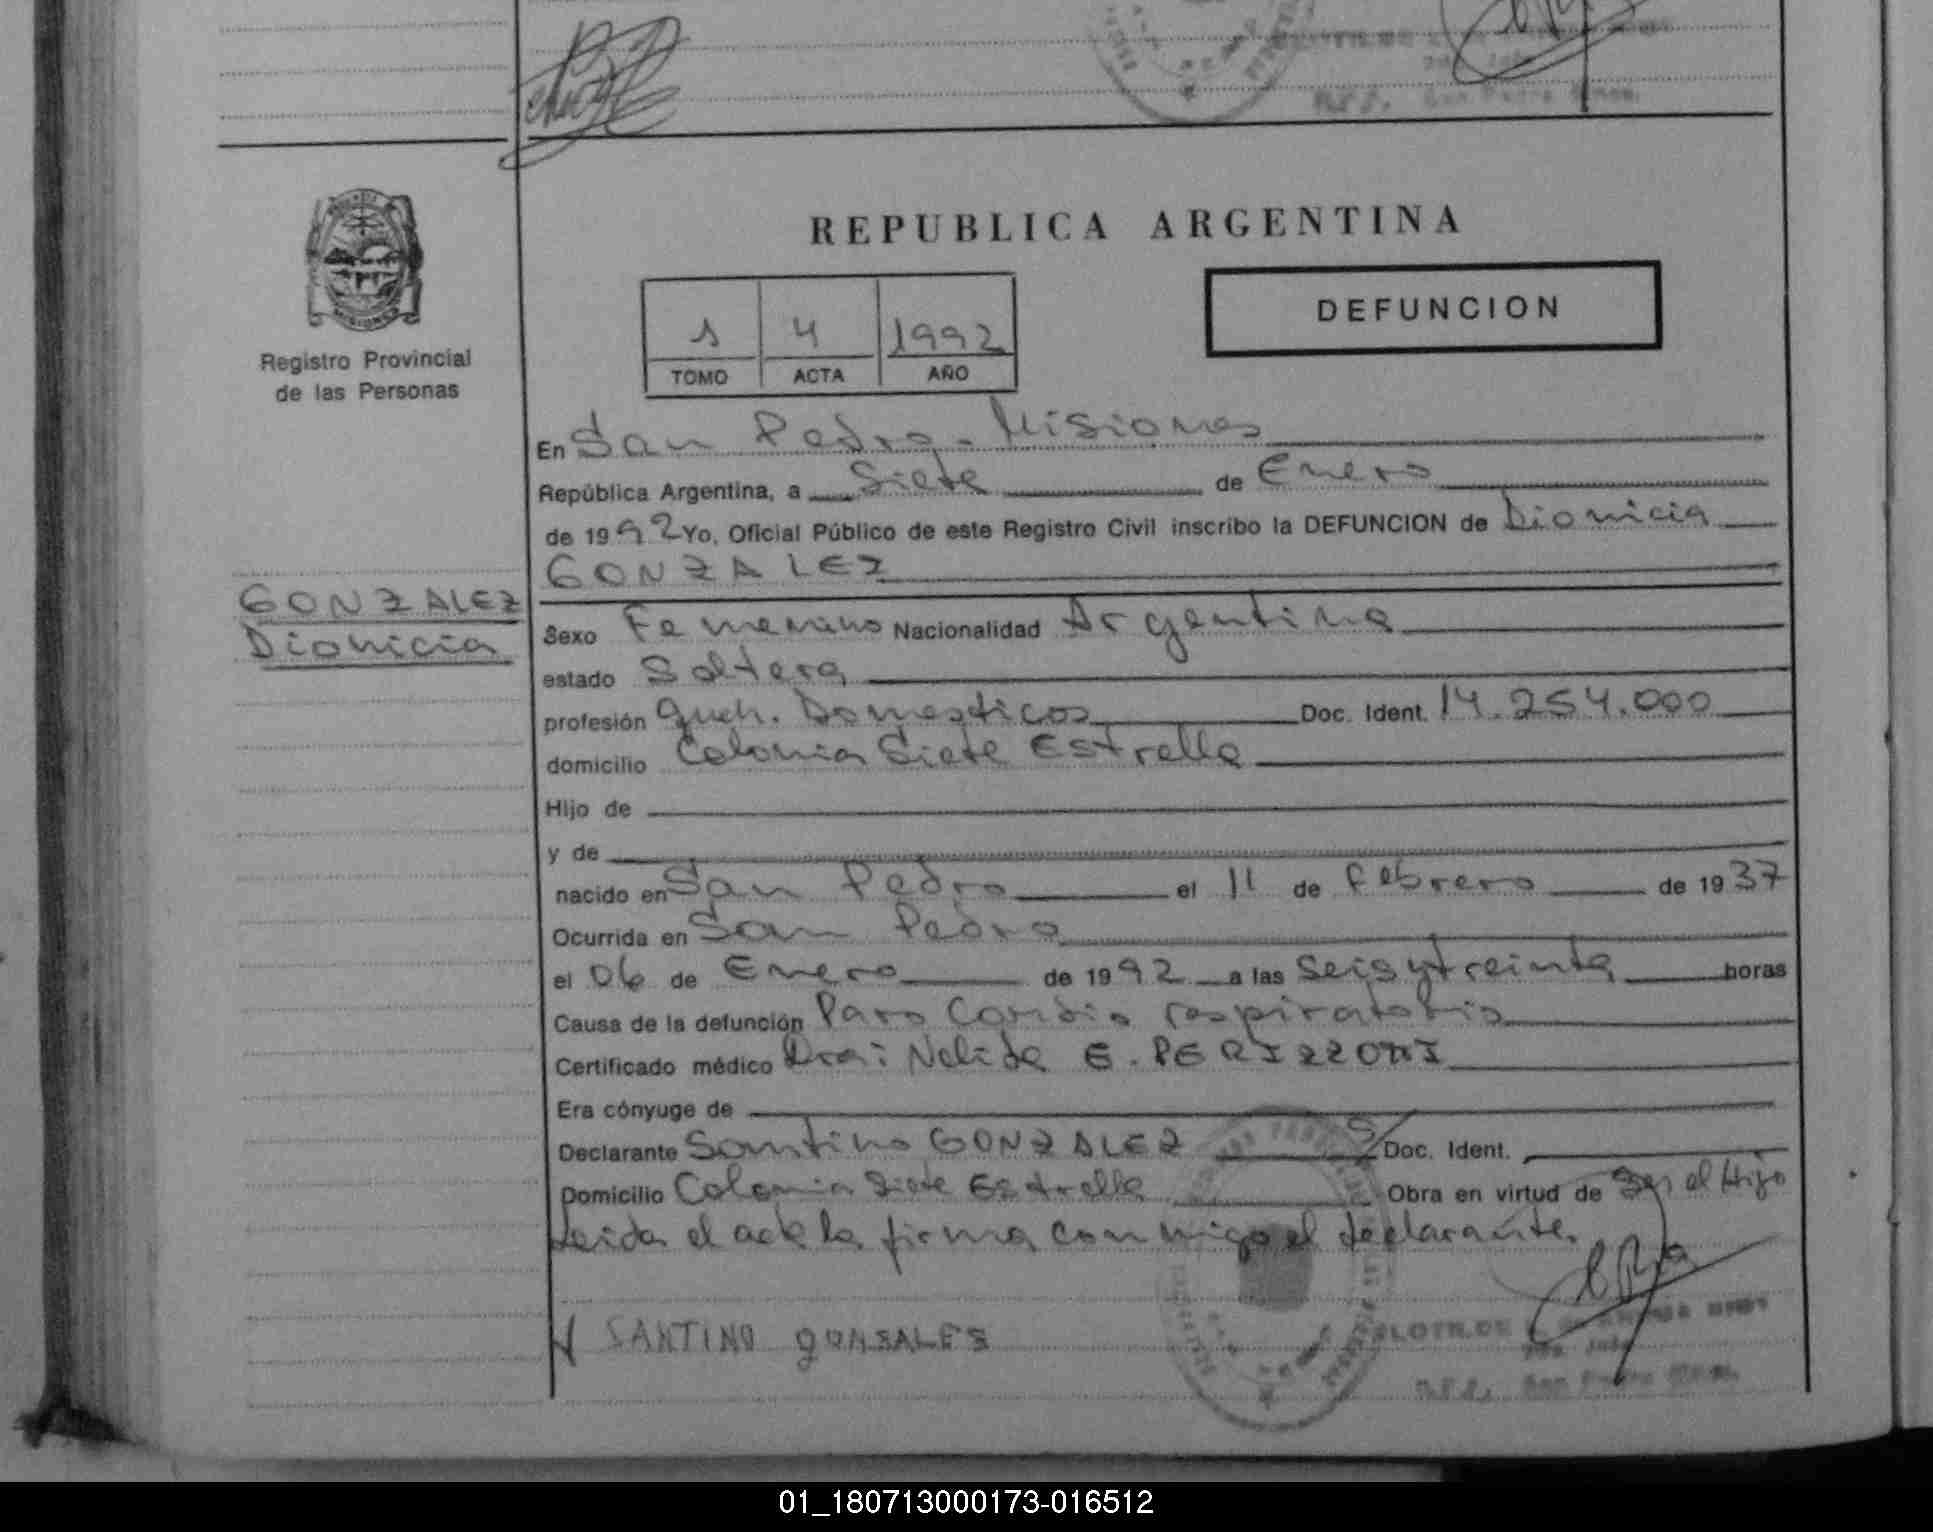 REPUBLICA ARGENTINA
MISIONES
Registro Provincial
de las Personas
DEFUNCION
1 4 1992
TOMO ACTA AÑO
En San Pedro - Misiones
República Argentina, a Siete de Enero
de 1992 Yo, Oficial Público de este Registro Civil inscribo la DEFUNCION de Dionicia
GONZALEZ
GONZALEZ
Dionicia
Sexo Femenino Nacionalidad Argentina
estado Soltera
profesión Queh. Domesticos Doc. Ident. 14.254.000
domicilio Colonia Siete Estrella
Hijo de
y de
nacido en San Pedro el 11 de Febrero de 1937
Ocurrida en San Pedro
el 06 de Enero de 1992 a las Seis y treinta horas
Causa de la defunción Paro Cardio respiratorio
Certificado médico Dra: Nelida E. PERIZZONI
Era cónyuge de
Declarante Santino GONZALEZ S/Doc. Ident.
Domicilio Colonia Siete Estrella Obra en virtud de Ser el Hijo
Leida el acta la firma conmigo el declarante.
SANTINO gONSALES
San Pedro
01_180713000173-016512